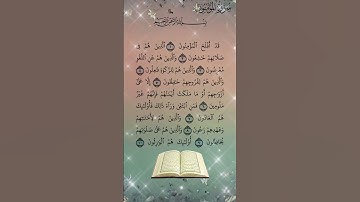 سورة المؤمنون
بسم الله الرحمن الرحيم
قَدْ أَفْلَحَ الْمُؤْمِنُونَ ۝ الَّذِينَ هُمْ فِي
صَلَاتِهِمْ خَاشِعُونَ ۝ وَالَّذِينَ هُمْ عَنِ اللَّغْوِ
مُعْرِضُونَ ۝ وَالَّذِينَ هُمْ لِلزَّكَاةِ فَاعِلُونَ ۝
وَالَّذِينَ هُمْ لِفُرُوجِهِمْ حَافِظُونَ ۝ إِلَّا عَلَىٰ
أَزْوَاجِهِمْ أَوْ مَا مَلَكَتْ أَيْمَانُهُمْ فَإِنَّهُمْ غَيْرُ
مَلُومِينَ ۝ فَمَنِ ابْتَغَىٰ وَرَاءَ ذَٰلِكَ فَأُولَٰئِكَ
هُمُ الْعَادُونَ ۝ وَالَّذِينَ هُمْ لِأَمَانَاتِهِمْ
وَعَهْدِهِمْ رَاعُونَ ۝ وَالَّذِينَ هُمْ عَلَىٰ صَلَوَاتِهِمْ
يُحَافِظُونَ ۝ أُولَٰئِكَ هُمُ الْوَارِثُونَ ۝